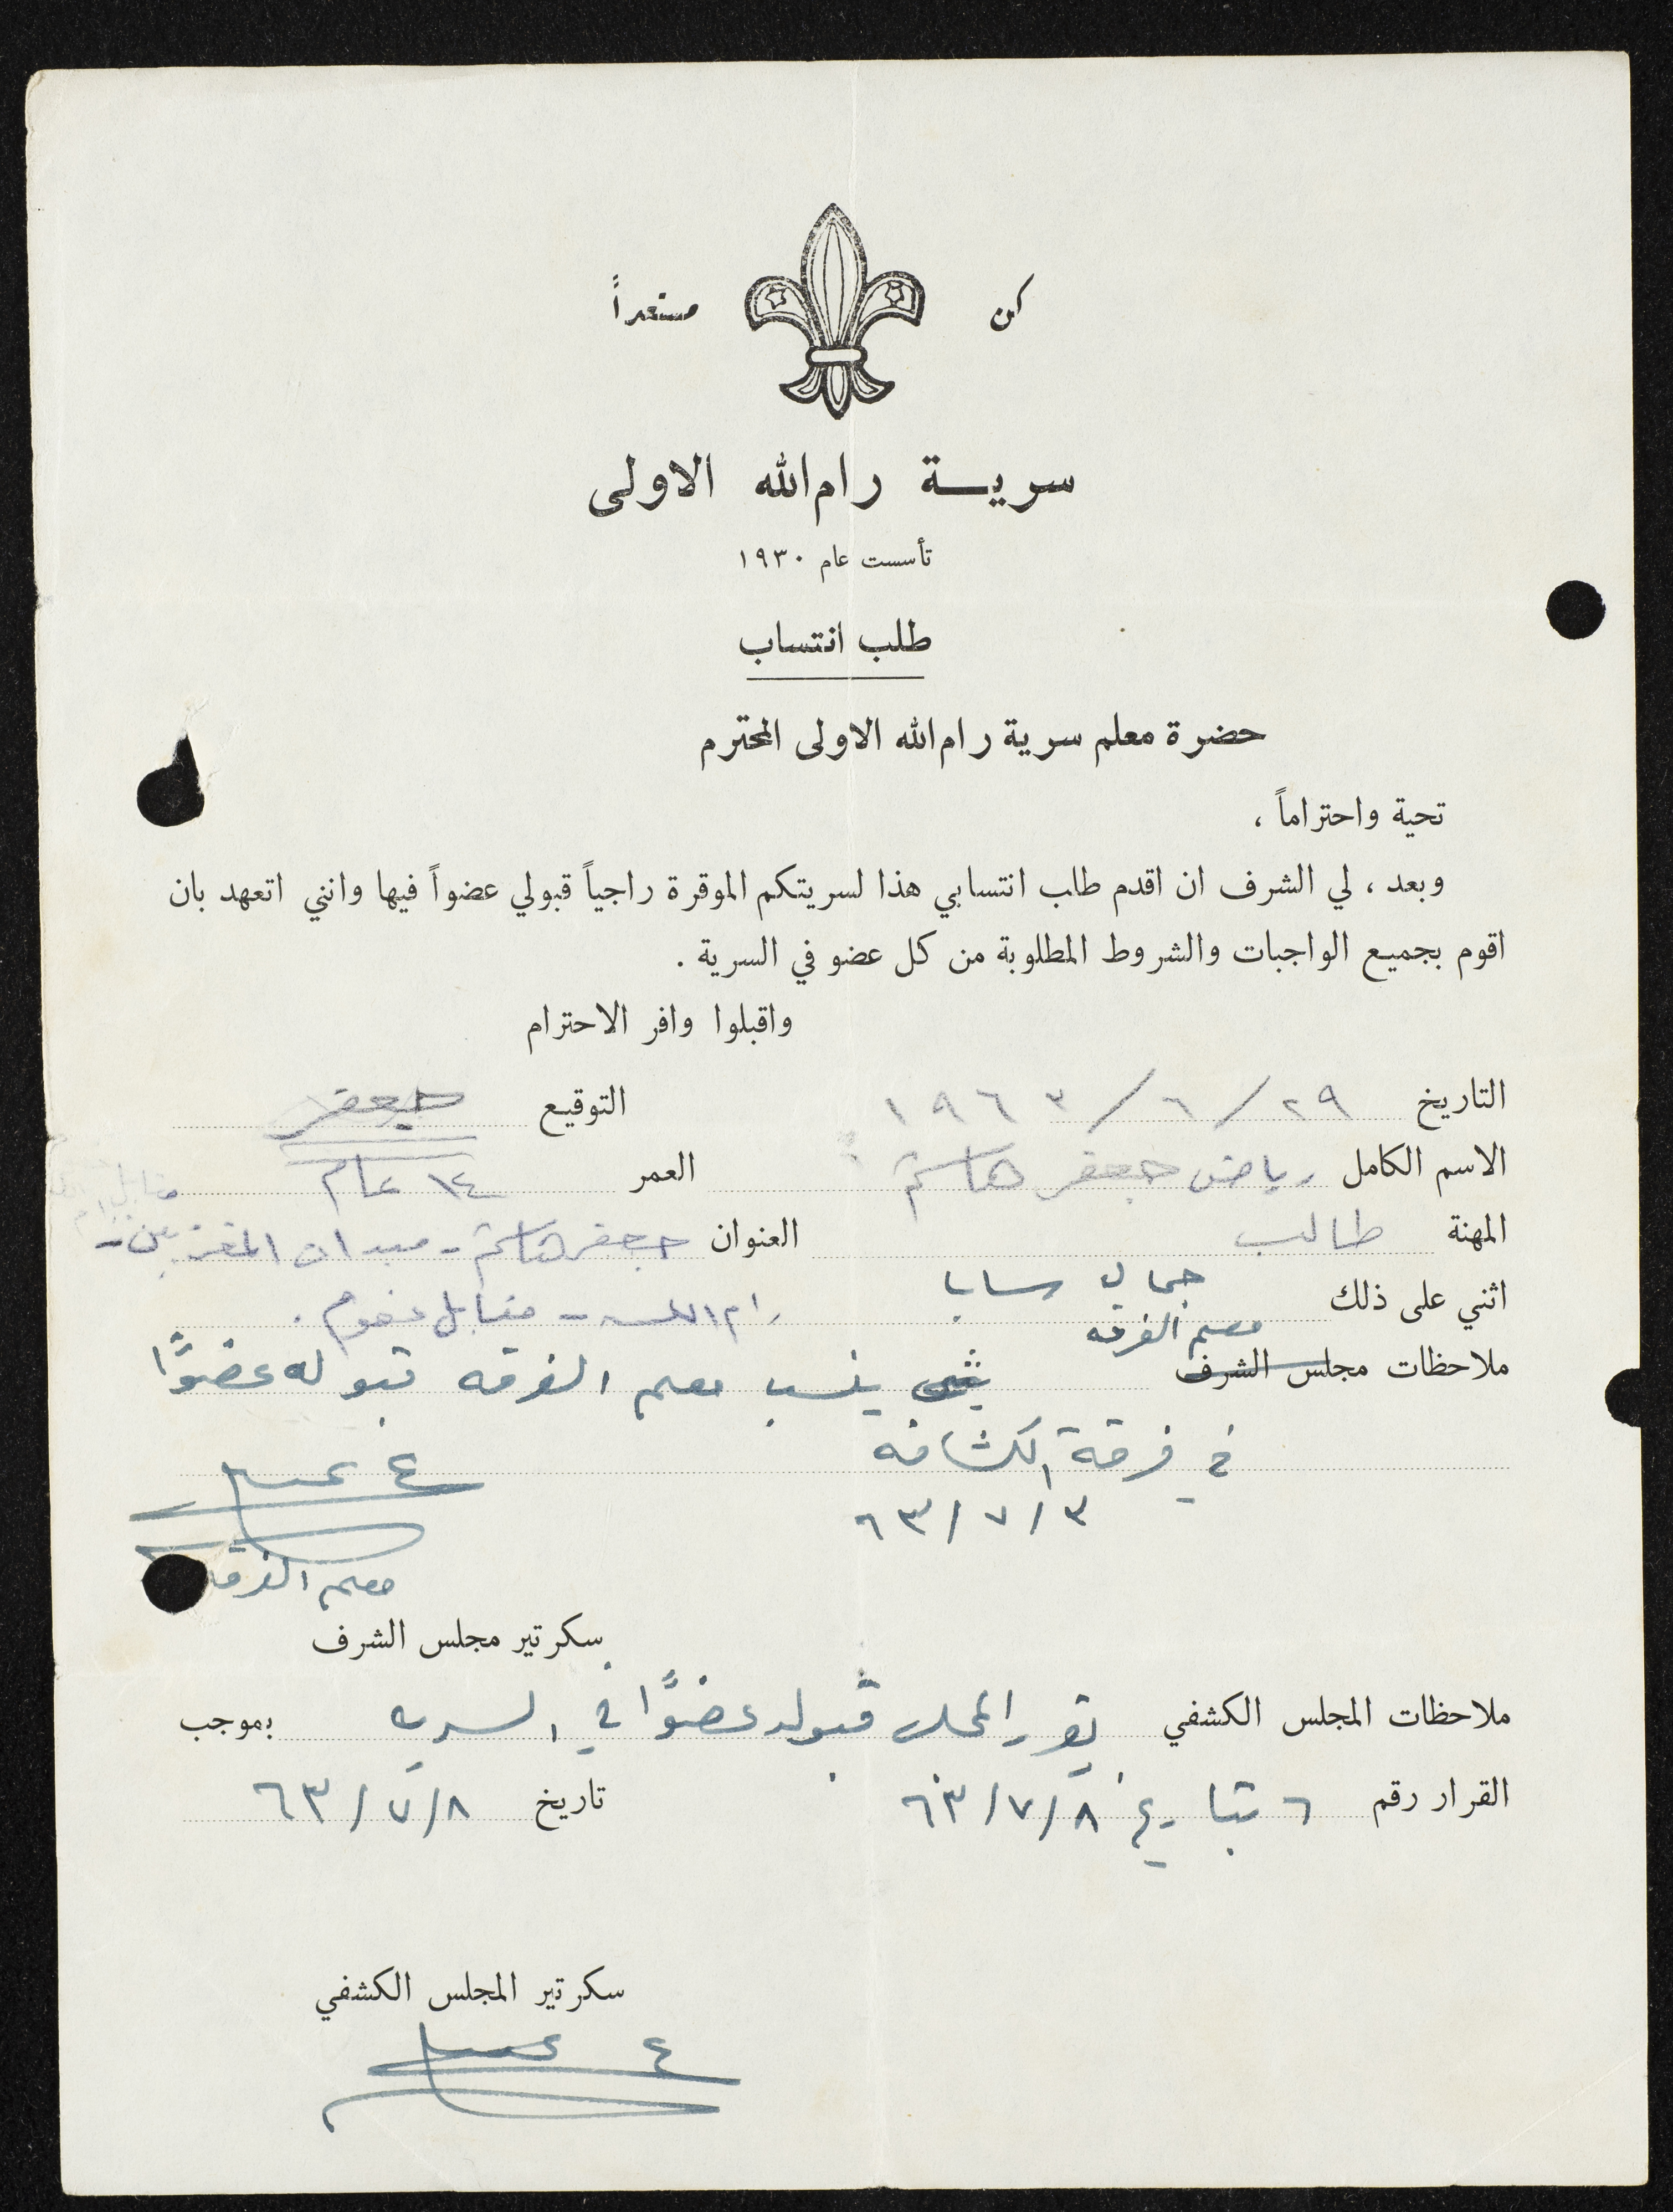 كن مستعداً
سرية رام الله الاولى
تأسست عام ١٩٣٠
طلب انتساب
حضرة معلم سرية رام الله الاولى المحترم
تحية واحتراماً ،
وبعد ، لي الشرف ان اقدم طلب انتسابي هذا لسريتكم الموقرة راجياً قبولي عضواً فيها وانني اتعهد بان
اقوم بجميع الواجبات والشروط المطلوبة من كل عضو في السرية .
واقبلوا وافر الاحترام
التاريخ ٢٩/٦/١٩٦٣ التوقيع جعفر
الاسم الكامل رياض جعفر هاشم العمر ١٤ عام
المهنة طالب العنوان جعفر هاشم - ميدان المغتربين - مقابل
اثني على ذلك جمال سابا رام الله - مقابل
ملاحظات مجلس الشرف معلم الفرقه ينسب معلم الفرقه قبوله عضوًا
في فرقة الكشافه
٣/٧/٦٣
معلم الفرقه
سكرتير مجلس الشرف
ملاحظات المجلس الكشفي يقرر المجلس قبوله عضوًا في السريه بموجب
القرار رقم ٦ بتاريخ ٨/٧/٦٣ تاريخ ٨/٧/٦٣
سكرتير المجلس الكشفي